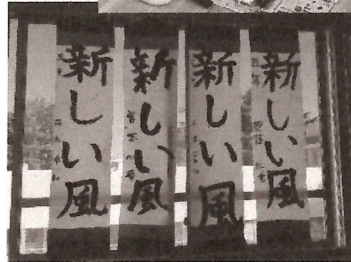 新しい風
新しい風
新しい風
新しい風